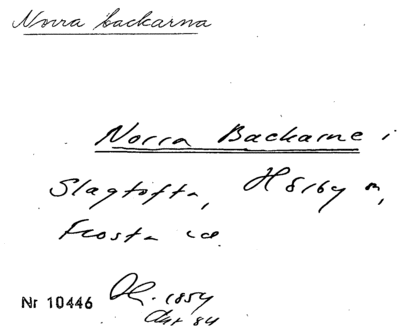 Norra backarna
Norra Backarne i
Slagtofta, Hörby sn,
Frosta hd.
Nr 10446 1854
Akt 84